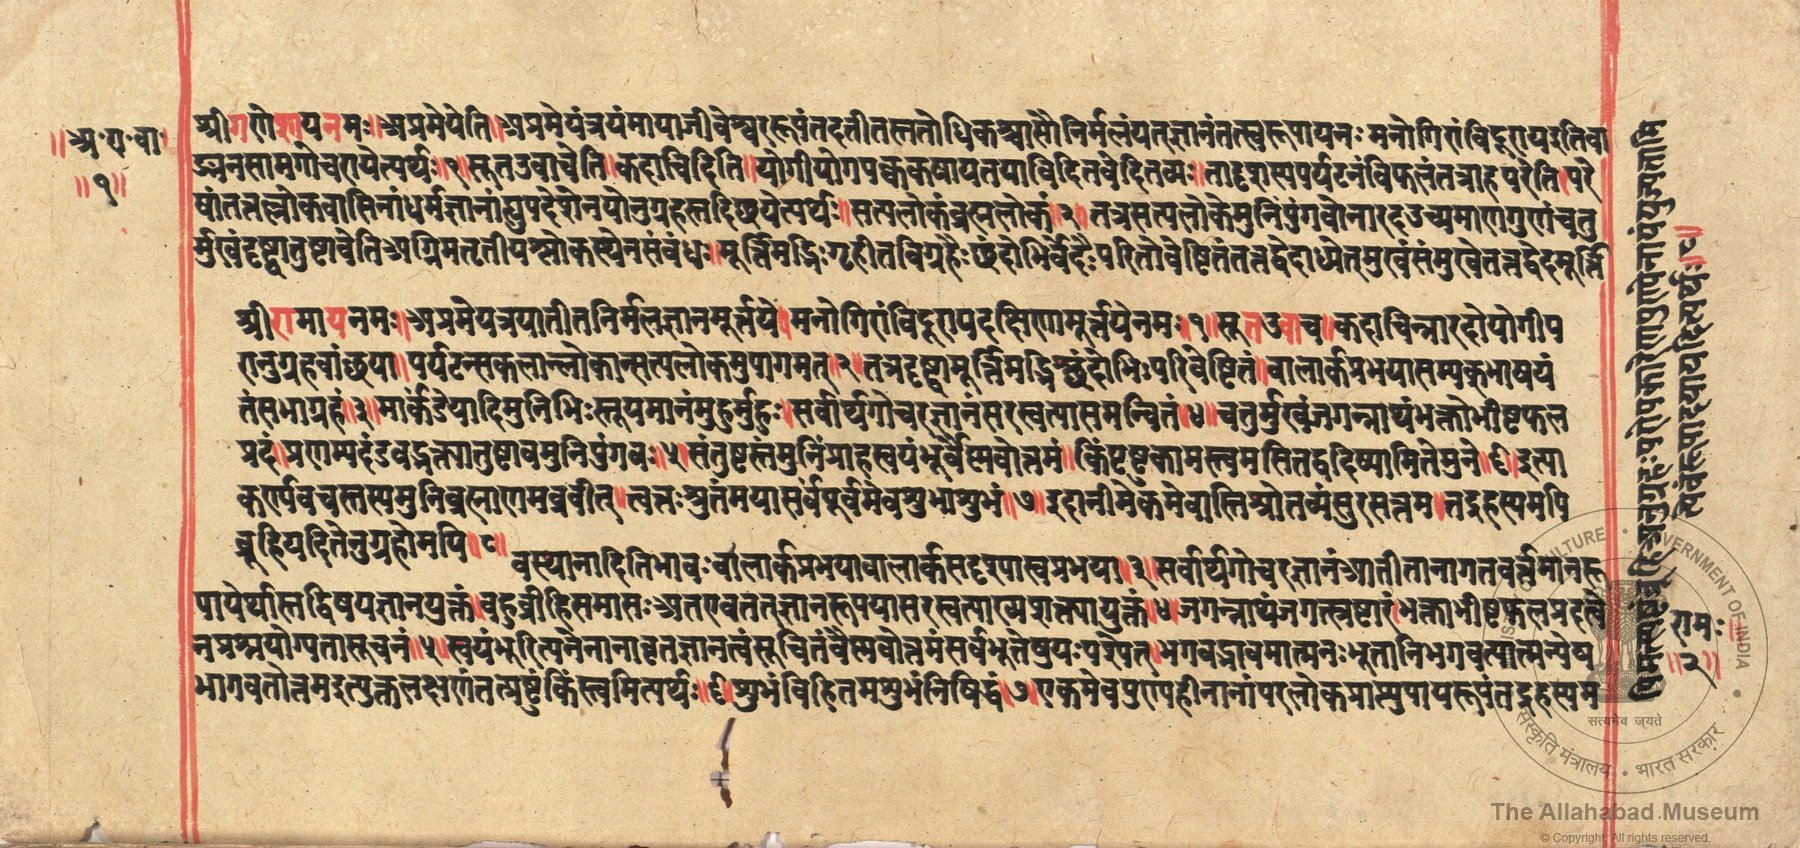 ॥अ॰रा॰बा॰
॥१॥
श्रीगणेशायनमः॥अप्रमेयेति॥अप्रमेयंत्रयंमायाजीवेश्वररूपंतदतीतस्ततोधिकश्चासौनिर्मलंयतज्ञानंतत्स्वरूपायनः मनोगिरांविदूरायइतिवा
ङ्मनसामगोचरायेत्यर्थः॥१॥सूतउवाचेति॥कदाचिदिति॥योगीयोगपक्वकषायतयाविदितवेदितव्यः॥तादृशस्यपर्यटनंविफलंतत्राहपरेति।परे
षांतत्तल्लोकवासिनांधर्मज्ञानांद्युपदेशेनयोनुग्रहस्तदिछयेत्यर्थः॥सत्यलोकंब्रह्मलोकं॥२॥तत्रसत्यलोकेमुनिपुंगवोनारदउच्यमाणगुणंचतु
र्मुखंदृष्ट्वातुष्टावेतिअग्रिमतृतीयश्लोकस्थेनसंबंधः॥मूर्त्तिमद्भिःगृहीतविग्रहैःछंदोभिर्वेदैःपरितोवेष्टितंतत्तद्वेदाध्येतृमुखंसंमुखेतत्तद्वेदमूर्त्ति
श्रीरामायनमः॥अप्रमेयत्रयातीतनिर्मलज्ञानमूर्त्तये॥मनोगिरांविदूरायदक्षिणामूर्त्तयेनमः॥१॥सूतउवाच॥कदाचिन्नारदोयोगीप
रानुग्रहवांछया॥पर्यटन्सकलान्लोकान्सत्यलोकमुपागमत्॥२॥तत्रदृष्ट्वामूर्त्तिमद्भिश्छंदोभिःपरिवेष्टितं॥बालार्कप्रभयासम्यक्भाषयं
तंसभागृहं॥३॥मार्कंडेयादिमुनिभिःस्तूयमानंमुहुर्मुहुः॥सर्वार्थगोचरज्ञानंसरस्वत्यासमन्वितं॥४॥चतुर्मुखंजगन्नाथंभक्तोभीष्टफल
प्रदं॥प्रणम्यदंडवद्भक्त्यातुष्टावमुनिपुंगवः॥५॥संतुष्टस्तंमुनिंप्राहस्वयंभूर्वैस्मवोत्तमं॥किंप्रष्टुकामस्त्वमसितद्वदिष्यामितेमुने॥६॥इत्या
कर्ण्यवचस्तस्यमुनिब्रह्माणमब्रवीत्॥त्वत्तःश्रुतंमयासर्वंपूर्वमेवशुभाशुभं॥७॥इदानीमेकमेवास्तिश्रोतव्यंसुरसत्तम॥तद्रहस्यमपि
ब्रूहियदितेनुग्रहोमयि॥८॥
वस्थानादितिभावःबालार्कप्रभयाबालार्कसदृशयास्वप्रभया॥३॥सर्वार्थगोचरज्ञानंअतीतानागतवर्त्तमानरू
पायेर्थास्तद्विषयज्ञानयुक्तं॥बहुव्रीहिसमासःअतएवतत्ज्ञानरूपयासरस्वत्यात्मशक्त्यायुक्तं॥४॥जगन्नाथंजगत्स्रष्टारंभक्ताभीष्टफलप्रदत्वे
नप्रश्नयोग्यतासूचनं॥५॥स्वयंभूरित्यनेनानावृतज्ञानत्वंसूचितंवैस्मवोत्तमंसर्वभूतेषुयःपश्येत्॥भगवद्भावमात्मनःभूतानिभगवत्यात्मन्येष
भागवतोत्तमइत्युक्तलक्षणंतत्प्रष्टुंकिंस्त्वमित्यर्थः॥६॥शुभंविहितमशुभंनिषिद्धं॥७॥एकमेवपुण्यहीनानांपरलोकप्राप्युपायरूपंतद्रहस्यम
त्येवंरूपादयायदीत्यर्थः॥८॥
रामः॥
॥२॥
The Allahabad Museum
© Copyright: All rights reserved.
MINISTRY OF CULTURE • GOVERNMENT OF INDIA
संस्कृति मंत्रालय • भारत सरकार
सत्यमेव जयते